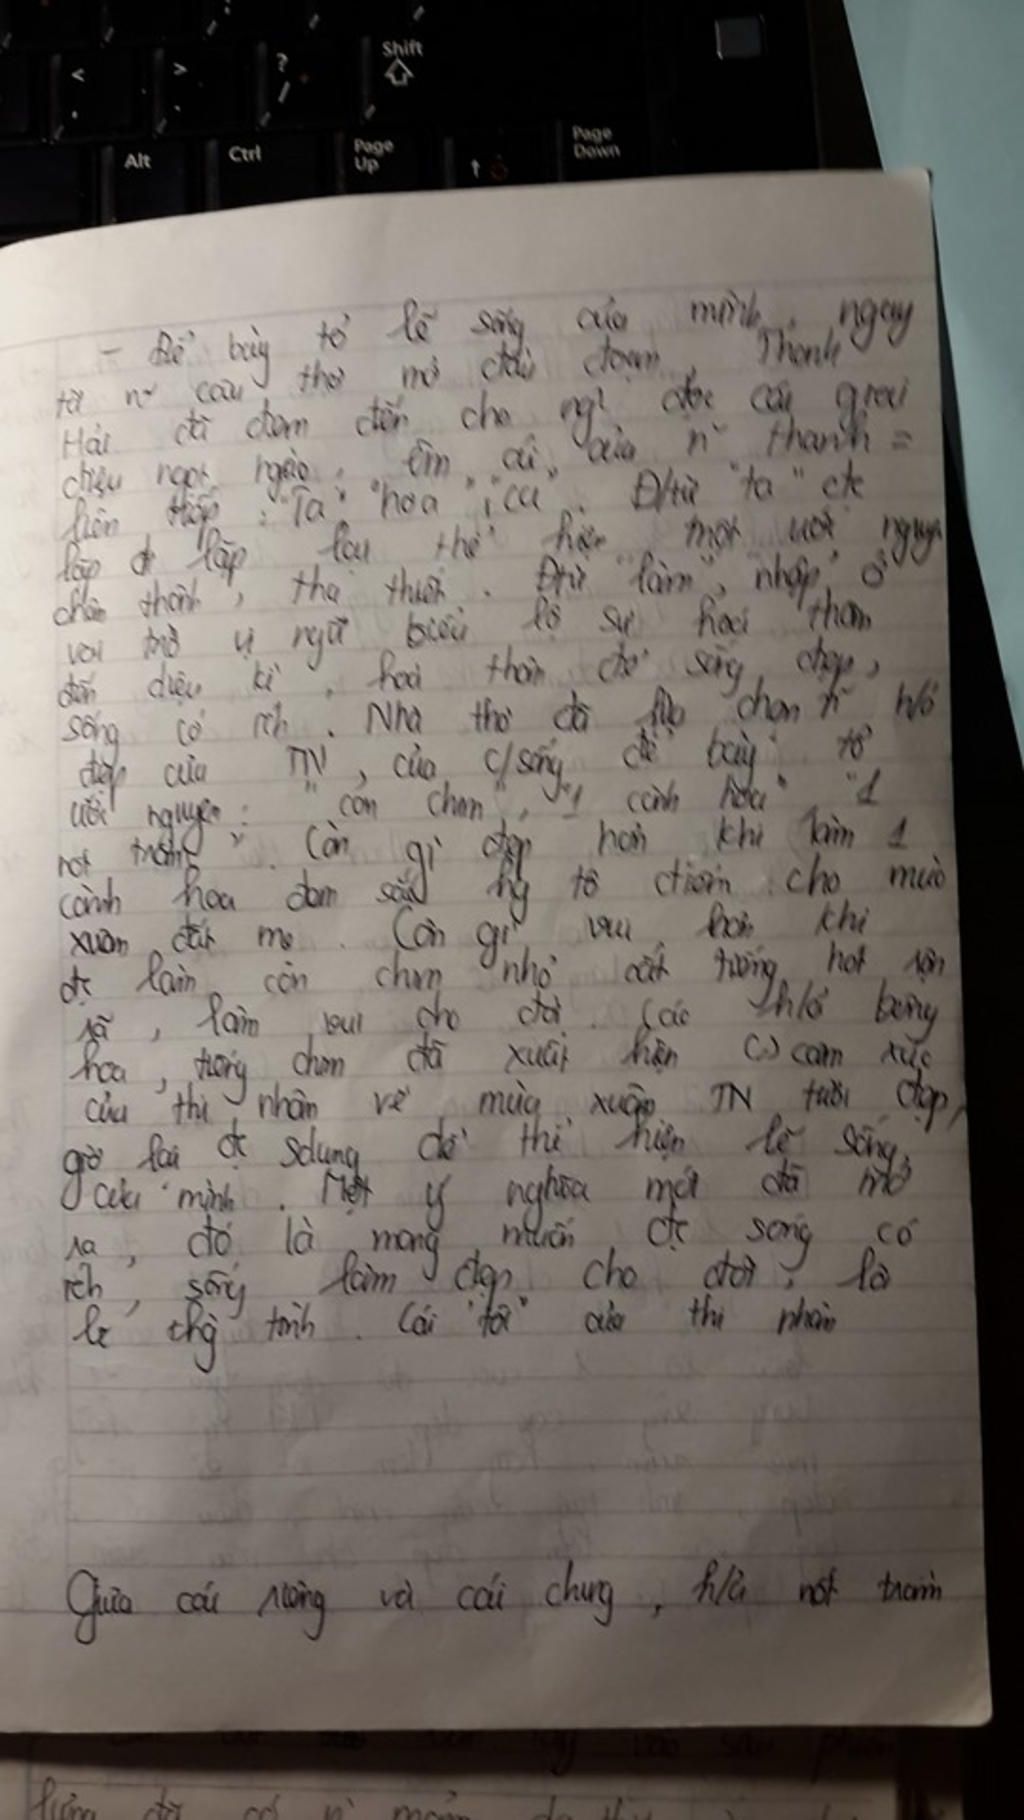 <
>
?
/
Shift
Alt
Ctrl
Page Up
Page Down
- Để bày tỏ lẽ sống của mình, ngay
từ n~ câu thơ mở đầu đoạn, Thanh
Hải đã đem đến cho ng` đọc cái giai
điệu ngọt ngào, êm ái, của n~ thanh =
liên tiếp : "Ta" "hoa", "ca". Đ/từ "ta" đc
lặp đi lặp lại thể hiện một ước nguyện
chân thành, tha thiết. Đtừ "làm", "nhập" ở
vai trò vị ngữ biểu lộ sự hoá thân
đến diệu kì, hoá thân để sống đẹp,
sống có ích. Nhà thơ đã lựa chọn n~ h/ả
đẹp của TN, của c/sống để bày tỏ
ước nguyện: "con chim", "1 cành hoa" "1
nốt trầm". Còn gì đẹp hơn khi làm 1
cành hoa đem sắc tô điểm cho mùa
xuân đất mẹ. Còn gì vui hơn khi
đc làm con chim nhỏ cất tiếng hót rộn
rã, làm vui cho đời. Các h/ả bông
hoa, tiếng chim đã xuất hiện cảm xúc
của thi nhân về mùa xuân TN tươi đẹp,
giờ lại đc sdụng để thể hiện lẽ sống
của mình. Một ý nghĩa mới đã mở
ra, đó là mong muốn đc sống có
ích, sống làm đẹp cho đời, là
lẽ tình. Cái "tôi" của thi nhân
Giữa cái riêng và cái chung, h/ả nốt trầm